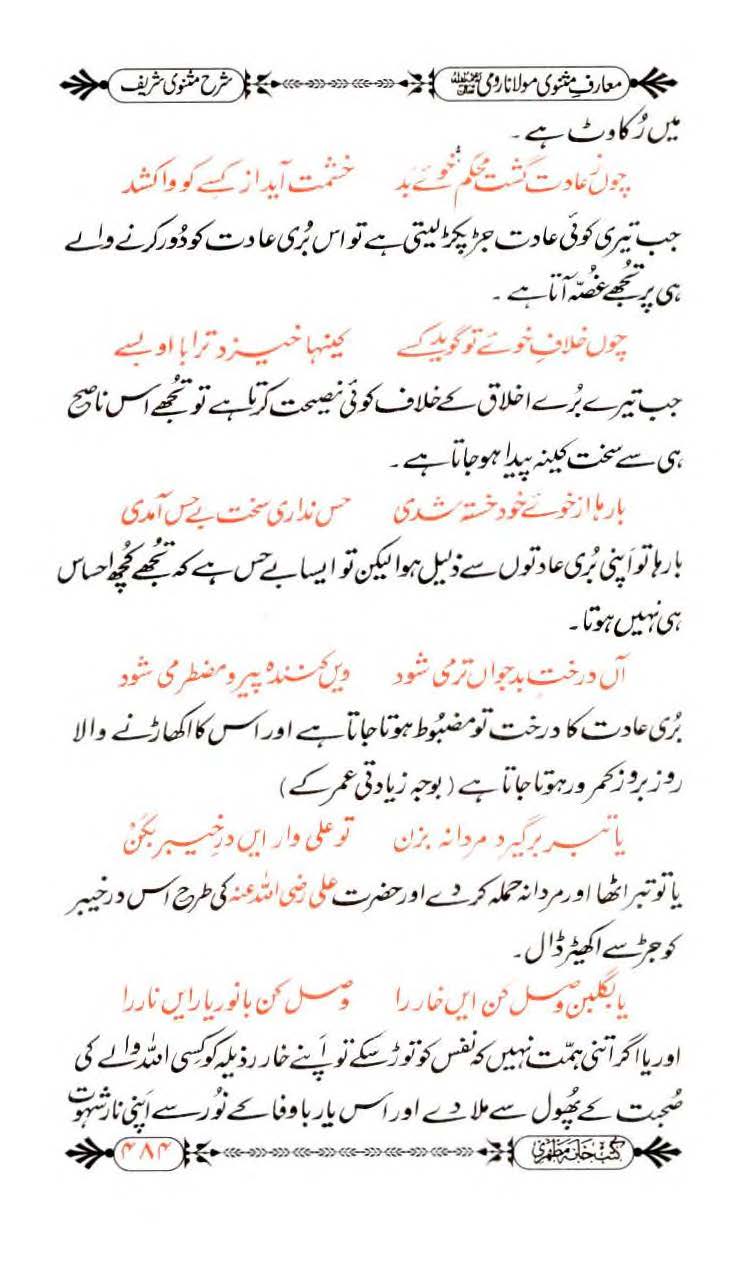 معارفِ مثنوی مولانا رومی رحمۃ اللہ علیہ شرح مثنوی شریف
میں رُکاوٹ ہے ۔
چوں ز عادت گشت محکم خوئے بد خشمت آید از کسے کو واکشد
جب تیری کوئی عادت جڑ پکڑ لیتی ہے تو اس بُری عادت کو دُور کرنے والے
ہی پر تجُھے غصُّہ آتا ہے ۔
چوں خلافِ خوئے تو گوید کسے کینہا خیزد ترا با او بسے
جب تیرے بُرے اخلاق کے خلاف کوئی نصیحت کرتا ہے تو تجُھے اس ناصح
ہی سے سخت کینہ پیدا ہو جاتا ہے ۔
بارہا از خوئے خود خستہ شدی حس نداری سخت بے حس آمدی
بارہا تو اَپنی بُری عادتوں سے ذلیل ہوا لیکن تو ایسا بے حس ہے کہ تجُھے کُچھ احساس
ہی نہیں ہوتا۔
آں درختِ بد جواں تر می شود ویں کنندہ پیر و مضطر می شود
بُری عادت کا درخت تو مضبُوط ہوتا جاتا ہے اور اس کا اکھاڑنے والا
روز بروز کمزور ہوتا جاتا ہے ( بوجہ زیادتی عمر کے )
یا تبر برگیر و مردانہ بزن تو علی وار ایں درِ خیبر بکَن
یا تو تبر اٹھا اور مردانہ حملہ کر دے اور حضرت علی رضی اللہ عنہ کی طرح اس در خیبر
کو جڑ سے اکھیڑ ڈال ۔
یا بگلبن وصل کن ایں خار را وصل کن با نورِ یار ایں نار را
اور یا اگر اتنی ہمّت نہیں کہ نفس کو توڑ سکے تو اَپنے خار رذیلہ کو کسِی اللہ والے کی
صُحبت کے پھُول سے ملا دے اور اس یار باوفا کے نُور سے اَپنی نار شہوت
کتب خانہ مظہری ۴۸۴